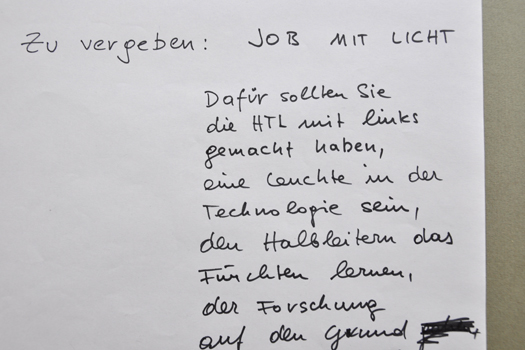 Zu vergeben: JOB MIT LICHT
Dafür sollten Sie
die HTL mit links
gemacht haben,
eine Leuchte in der
Technologie sein,
den Halbleitern das
Fürchten lernen,
der Forschung
auf den Grund